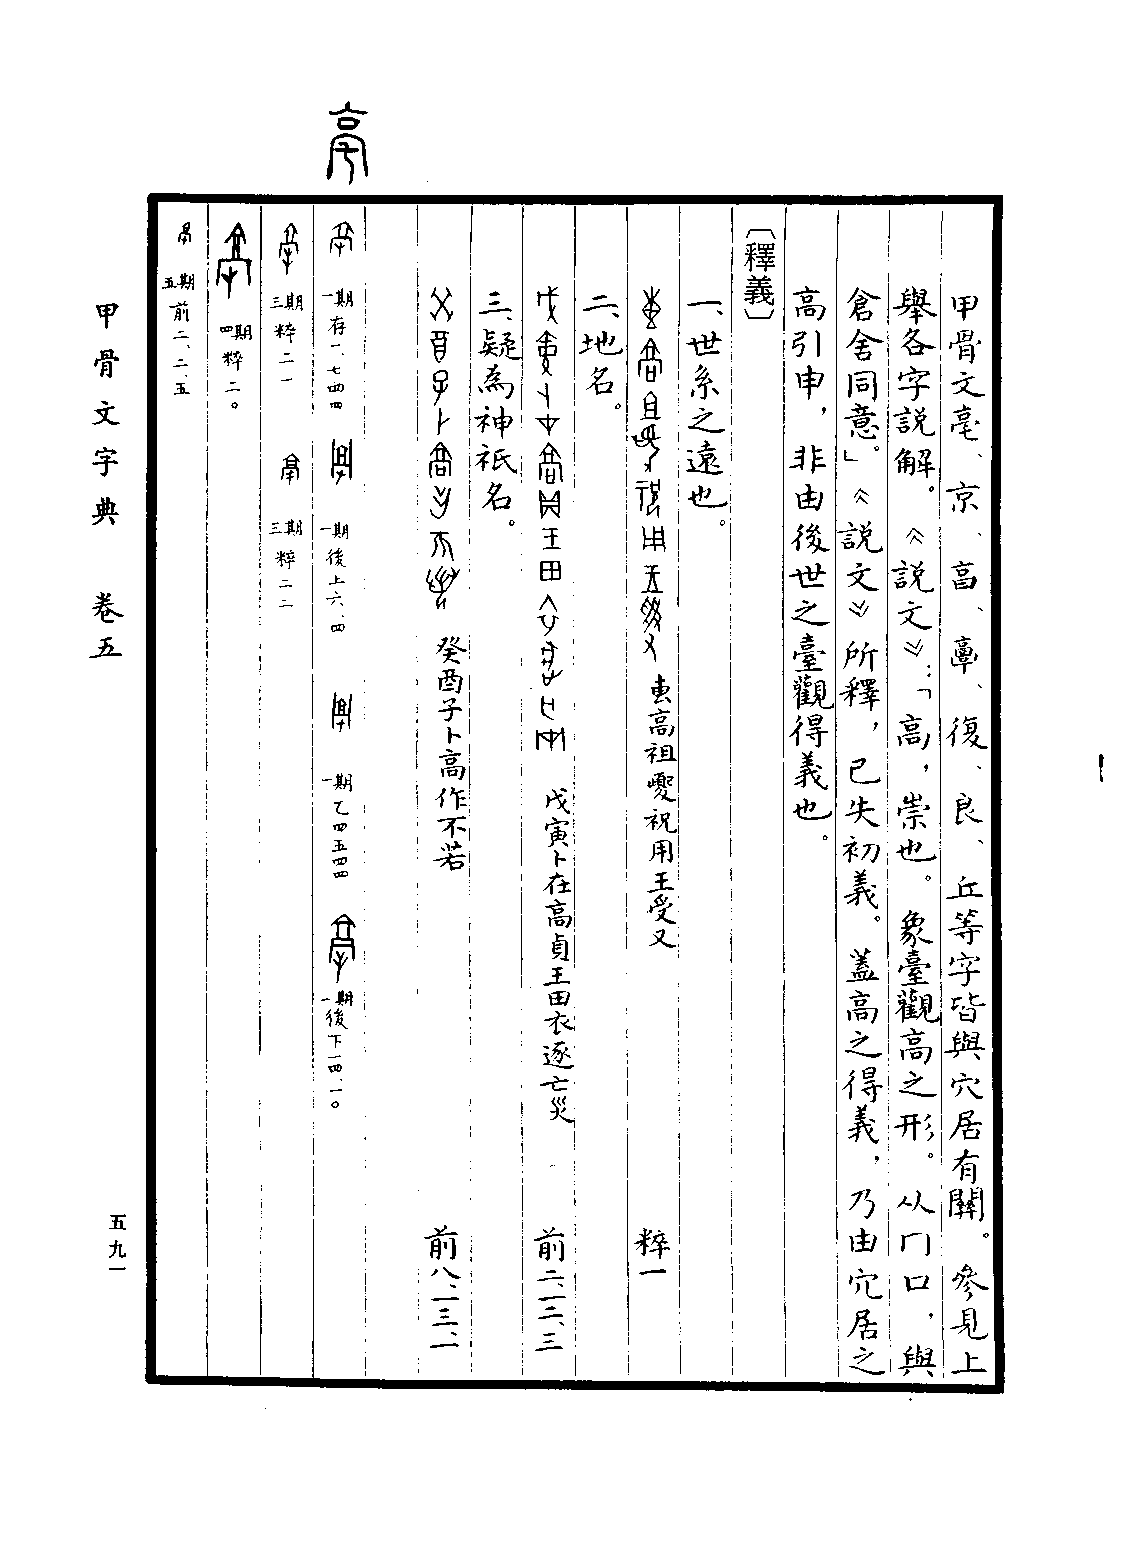 甲骨文亳、京、㐭、𩫏、復、良、丘等字皆與穴居有關。參見上
舉各字說解。《說文》：「高，崇也。象臺觀高之形。从冂口，與
倉舍同意。」《說文》所釋，已失初義。蓋高之得義，乃由穴居之
高引申，非由後世之臺觀得義也。
〔釋義〕
一、世系之遠也。
叀高祖夒祝用王受又 粹一
二、地名。
戊寅卜在高貞王田衣逐亡災 前二、一二、三
三、疑為神祇名。
癸酉子卜高作不若 前八、一三、一
亳
一期存一、七四四 一期後上六、四 一期乙四五四四 一期後下一四、一〇
三期粹二一 三期粹二二
四期粹二〇
五期前二、二、五
甲骨文字典 卷五
五九一